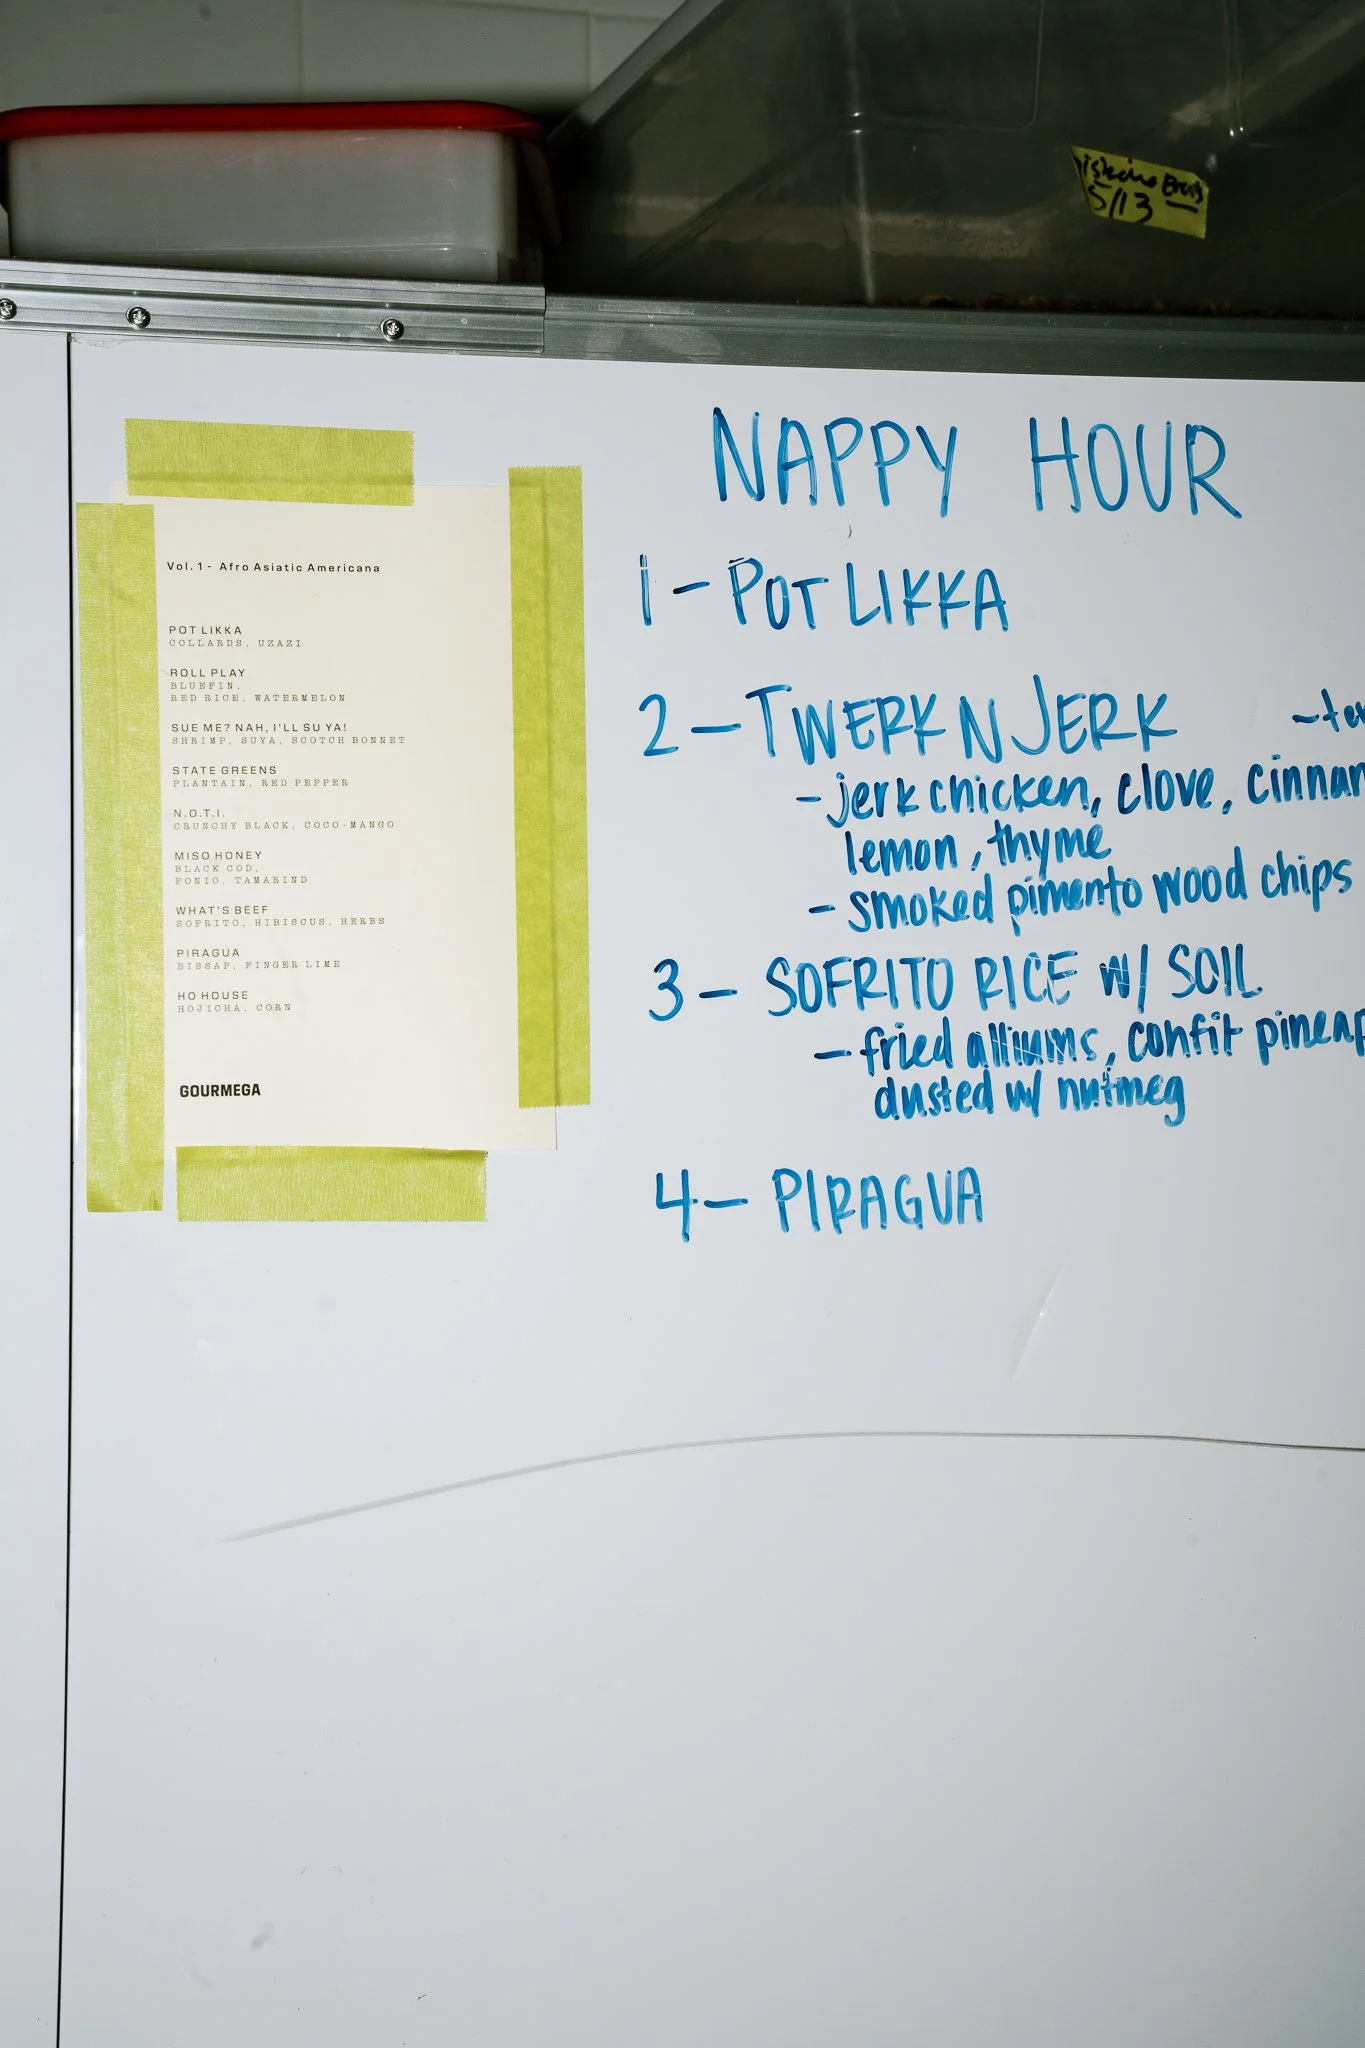 5/13
Vol. 1 - Afro Asiatic Americana
POT LIKKA
COLLARDS, UZAZI
ROLL PLAY
BLUEFIN,
RED RICE, WATERMELON
SUE ME? NAH, I'LL SU YA!
SHRIMP, SUYA, SCOTCH BONNET
STATE GREENS
PLANTAIN, RED PEPPER
N.O.T.I.
CRUNCHY BLACK, COCO-MANGO
MISO HONEY
BLACK COD,
FONIO, TAMARIND
WHAT'S BEEF
SOFRITO, HIBISCUS, HERBS
PIRAGUA
BISSAP, FINGER LIME
HO HOUSE
HOJICHA, CORN
GOURMEGA
NAPPY HOUR
1 - POT LIKKA
2 - TWERK N JERK
- jerk chicken, clove, cinnam
lemon, thyme
- smoked pimento wood chips
3 - SOFRITO RICE W/ SOIL
- fried alliums, confit pineap
dusted w/ nutmeg
4 - PIRAGUA